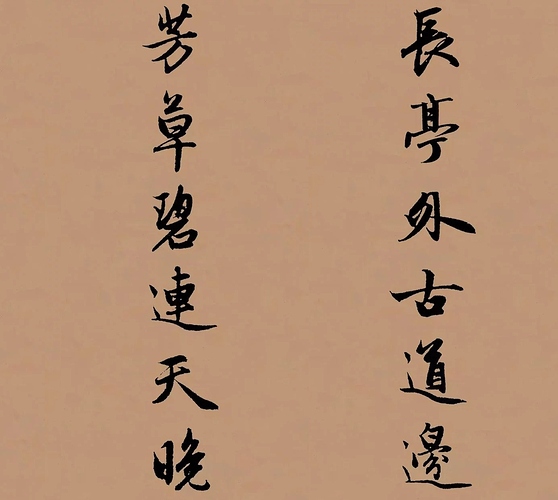 長亭外古道邊
芳草碧連天晚